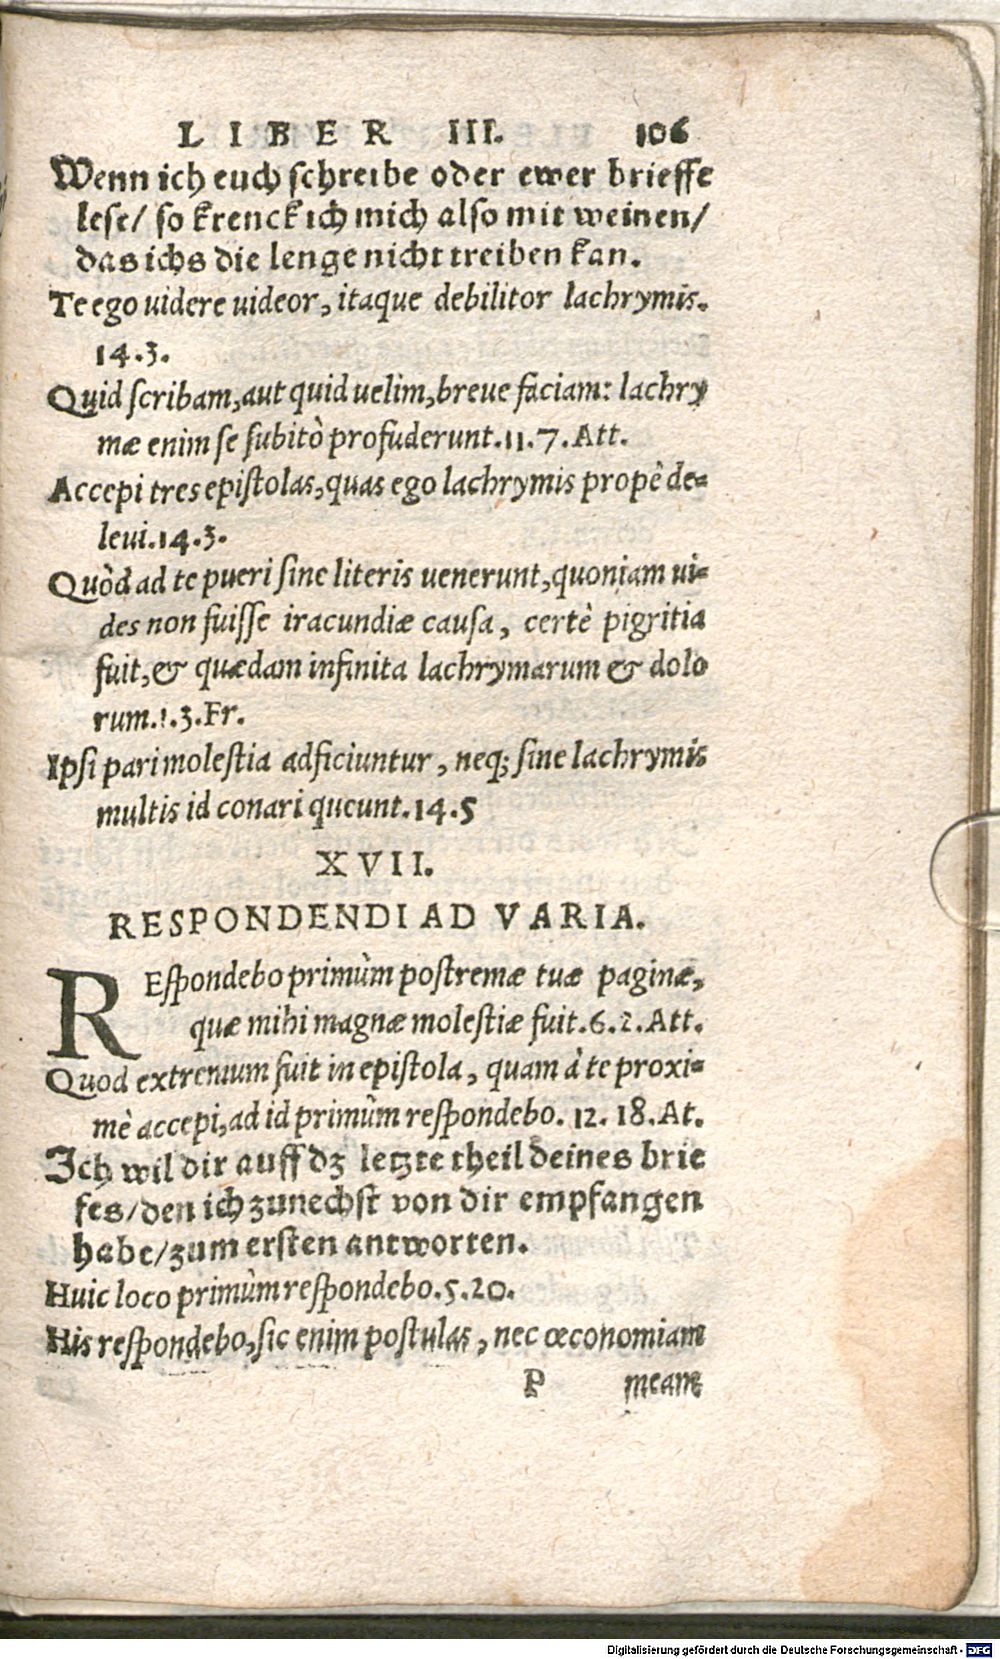 LIBER III. 106
Wenn ich euch schreibe oder ewer brieffe
lese/ so krenck ich mich also mit weinen/
das ichs die lenge nicht treiben kan.
Te ego uidere uideor, itaque debilitor lachrymis.
14.3.
Quid scribam, aut quid uelim, breue faciam: lachry
mæ enim se subitò profuderunt. 11.7. Att.
Accepi tres epistolas, quas ego lachrymis propè de=
leui. 14.3.
Quòd ad te pueri sine literis uenerunt, quoniam ui=
des non fuisse iracundiæ causa, certè pigritia
fuit, & quædam infinita lachrymarum & dolo
rum. 1.3. Fr.
Ipsi pari molestia adficiuntur, neq; sine lachrymis
multis id conari queunt. 14.5
XVII.
RESPONDENDI AD VARIA.
REspondebo primùm postremæ tuæ paginæ,
quæ mihi magnæ molestiæ fuit. 6.2. Att.
Quod extremum fuit in epistola, quam à te proxi=
mè accepi, ad id primùm respondebo. 12. 18. At.
Ich wil dir auff dz letzte theil deines brie
fes/ den ich zunechst von dir empfangen
habe/ zum ersten antworten.
Huic loco primùm respondebo. 5.20.
His respondebo, sic enim postulas, nec œconomiam
P meam
Digitalisierung gefördert durch die Deutsche Forschungsgemeinschaft - DFG